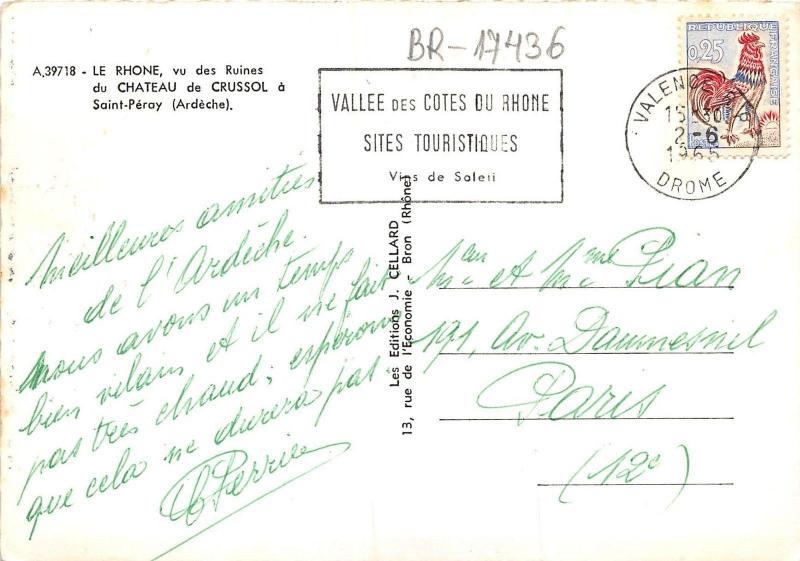 BR-17436
A.39718 - LE RHONE, vu des Ruines
du CHATEAU de CRUSSOL à
Saint-Péray (Ardèche).
VALLEE DES COTES DU RHONE
SITES TOURISTIQUES
Vins de Soleil
REPUBLIQUE FRANÇAISE
0,25
15-30
2-6
1965
DROME
Meilleures amitiés
de l'Ardèche.
nous avons un temps
bien vilain, et il ne fait
pas très chaud, espérons
que cela ne durera pas
Les Editions J. CELLARD
13, rue de l'Economie - Bron (Rhône)
et
191, Av. Daumesnil
Paris
(12e)